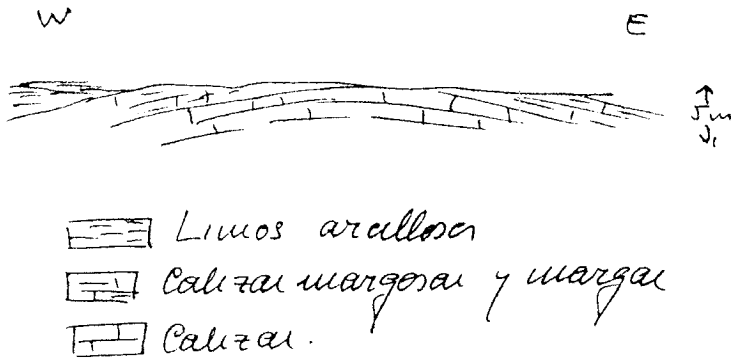 W E
5m
Limos arcillosos
Calizas margosas y margas
Calizas.